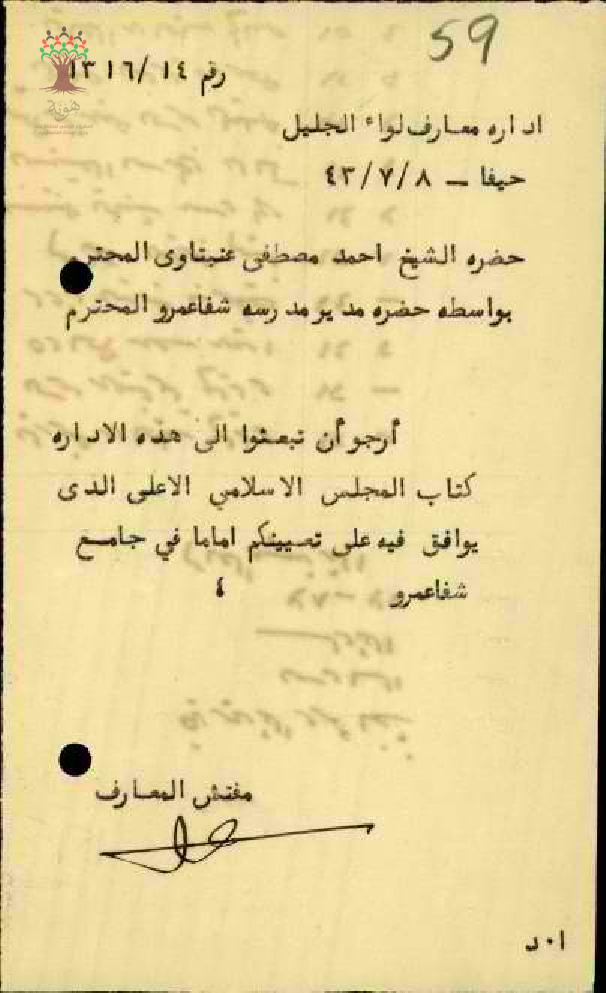 59
رقم ١٣١٦/١٤
هوية
اداره معارف لواء الجليل
حيفا — ٤٣/٧/٨
حضره الشيخ احمد مصطفى عنبتاوى المحترم
بواسطه حضره مدير مدرسه شفاعمرو المحترم
أرجو أن تبعثوا الى هذه الاداره
كتاب المجلس الاسلامي الاعلى الذى
يوافق فيه على تعيينكم اماما في جامع
شفاعمرو ٤
مفتش المعارف
ا٠د